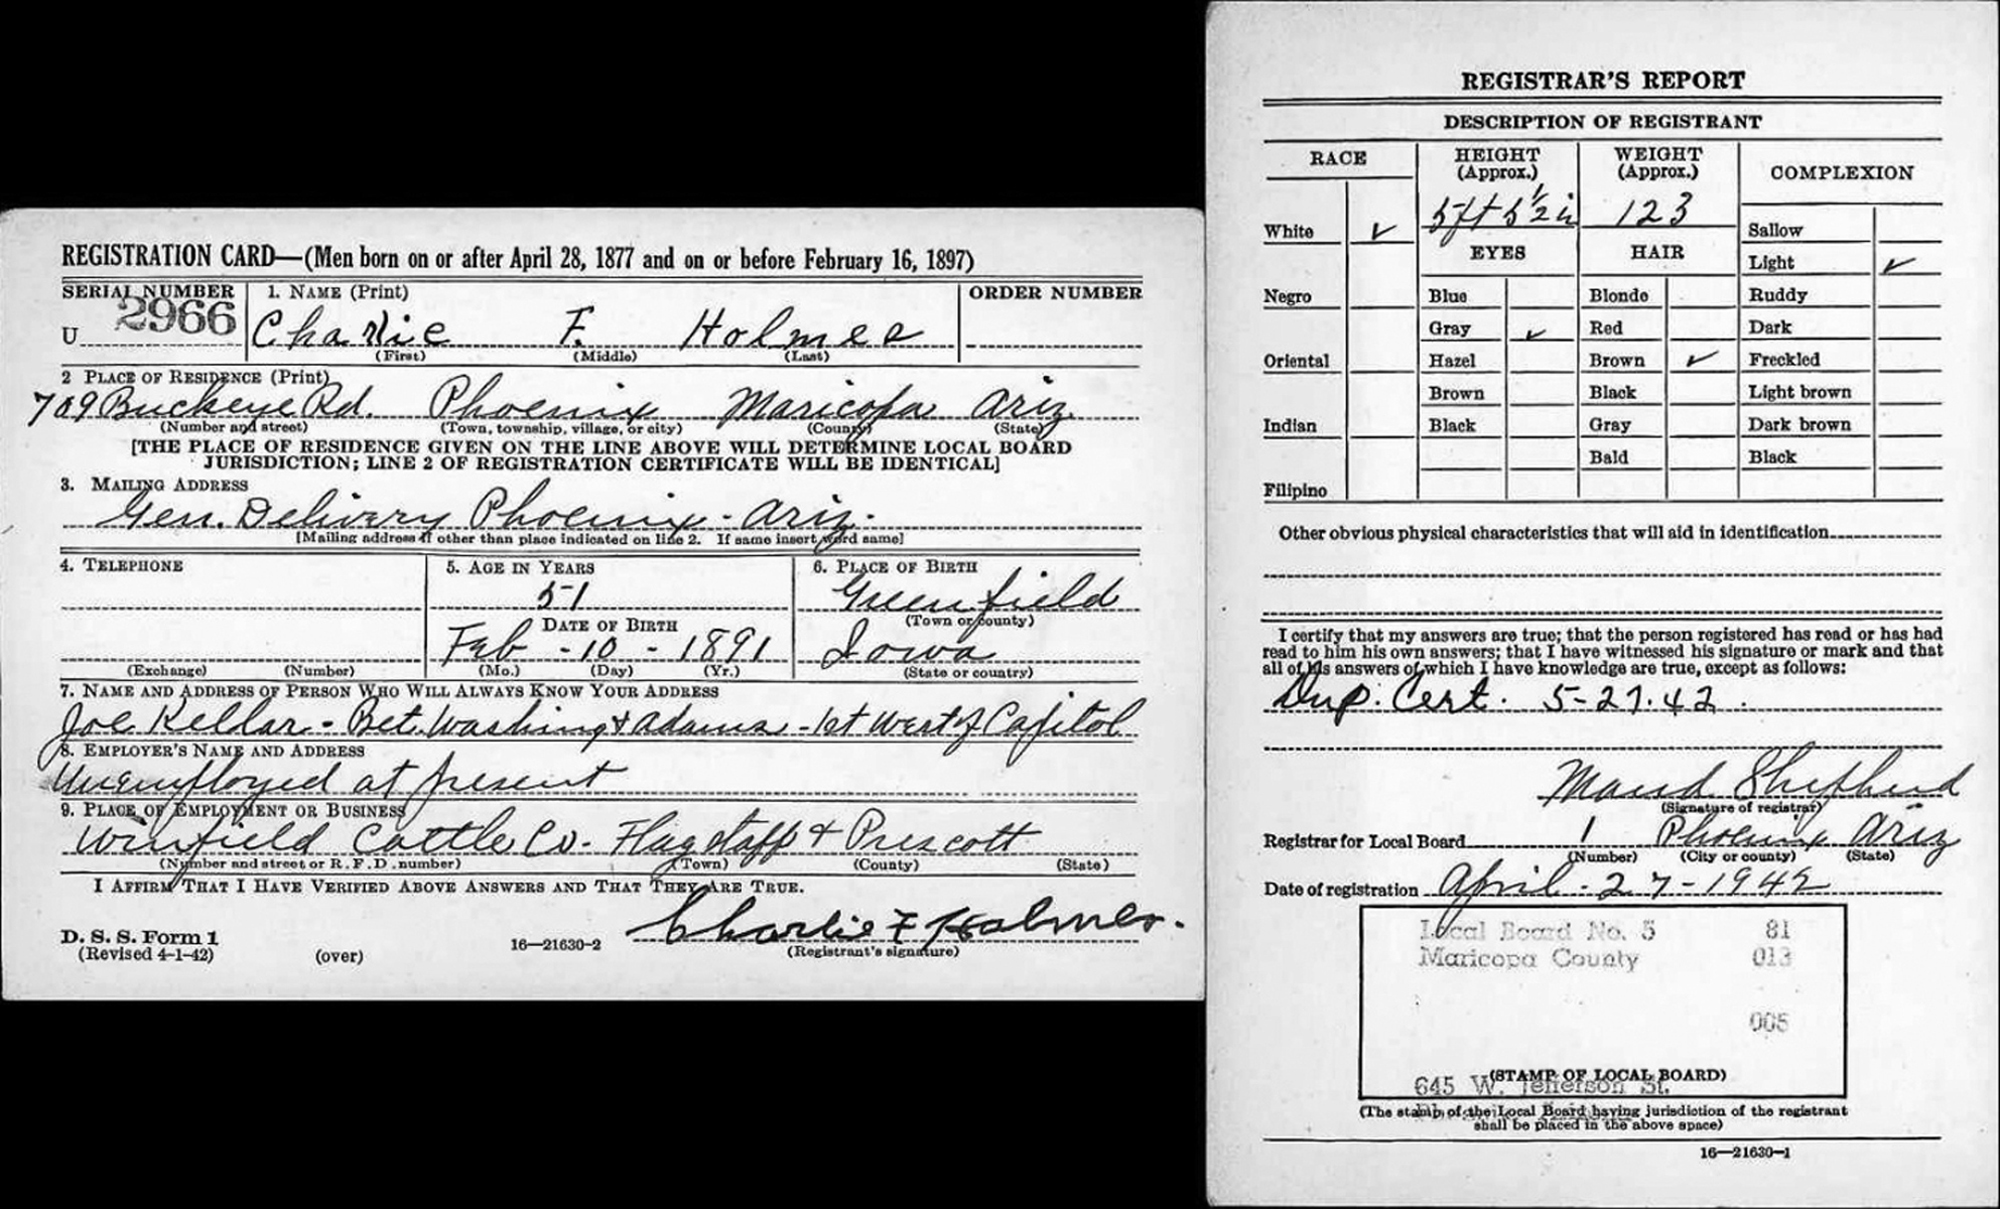 REGISTRATION CARD—(Men born on or after April 28, 1877 and on or before February 16, 1897)
SERIAL NUMBER
1. NAME (Print)
ORDER NUMBER
U 2966
Charlie F. Holmes
(First) (Middle) (Last)
2 PLACE OF RESIDENCE (Print)
709 Buckeye Rd. Phoenix Maricopa Ariz
(Number and street) (Town, township, village, or city) (County) (State)
[THE PLACE OF RESIDENCE GIVEN ON THE LINE ABOVE WILL DETERMINE LOCAL BOARD
JURISDICTION; LINE 2 OF REGISTRATION CERTIFICATE WILL BE IDENTICAL]
3. MAILING ADDRESS
Gen. Delivery Phoenix - Ariz.
[Mailing address if other than place indicated on line 2. If same insert word same]
4. TELEPHONE
(Exchange) (Number)
5. AGE IN YEARS
51
DATE OF BIRTH
Feb - 10 - 1891
(Mo.) (Day) (Yr.)
6. PLACE OF BIRTH
Greenfield
(Town or county)
Iowa
(State or country)
7. NAME AND ADDRESS OF PERSON WHO WILL ALWAYS KNOW YOUR ADDRESS
Joe Kellar - Bet. Washing & Adams - 1st West of Capitol
8. EMPLOYER'S NAME AND ADDRESS
Unemployed at present
9. PLACE OF EMPLOYMENT OR BUSINESS
Winfield Cattle Co. Flagstaff & Prescott
(Number and street or R. F. D. number) (Town) (County) (State)
I AFFIRM THAT I HAVE VERIFIED ABOVE ANSWERS AND THAT THEY ARE TRUE.
Charlie F Holmes.
D. S. S. Form 1
(Revised 4-1-42) (over) 16—21630-2 (Registrant's signature)
REGISTRAR'S REPORT
DESCRIPTION OF REGISTRANT
RACE
White ✓
Negro
Oriental
Indian
Filipino
HEIGHT
(Approx.)
5 ft 5 ½ in
WEIGHT
(Approx.)
123
EYES
Blue
Gray ✓
Hazel
Brown
Black
HAIR
Blonde
Red
Brown ✓
Black
Gray
Bald
COMPLEXION
Sallow
Light ✓
Ruddy
Dark
Freckled
Light brown
Dark brown
Black
Other obvious physical characteristics that will aid in identification
I certify that my answers are true; that the person registered has read or has had
read to him his own answers; that I have witnessed his signature or mark and that
all of his answers of which I have knowledge are true, except as follows:
Dup. Cert. 5-27.42.
Maud Shepherd
(Signature of registrar)
Registrar for Local Board 1 Phoenix Ariz
(Number) (City or county) (State)
Date of registration April - 27 - 1942
Local Board No. 5 81
Maricopa County 013
005
(STAMP OF LOCAL BOARD)
645 W. Jefferson St.
(The stamp of the Local Board having jurisdiction of the registrant
shall be placed in the above space)
16—21630-1